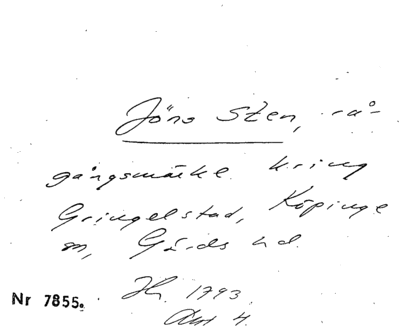 Jöns Sten, rå-
gångsmärke kring
Gringelstad, Köpinge
sn, Gärds hd.
Nr 7855. Hr. 1793,
Akt 4.